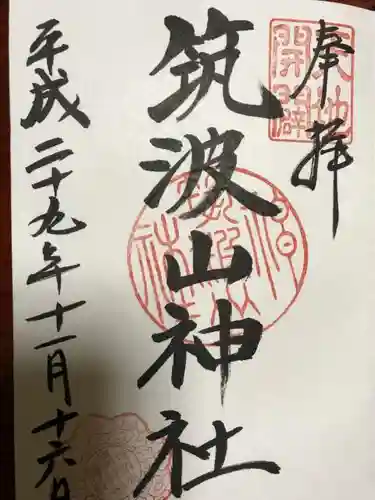 奉拝
天地
開闢
筑波山神社
平成二十九年十一月十六日